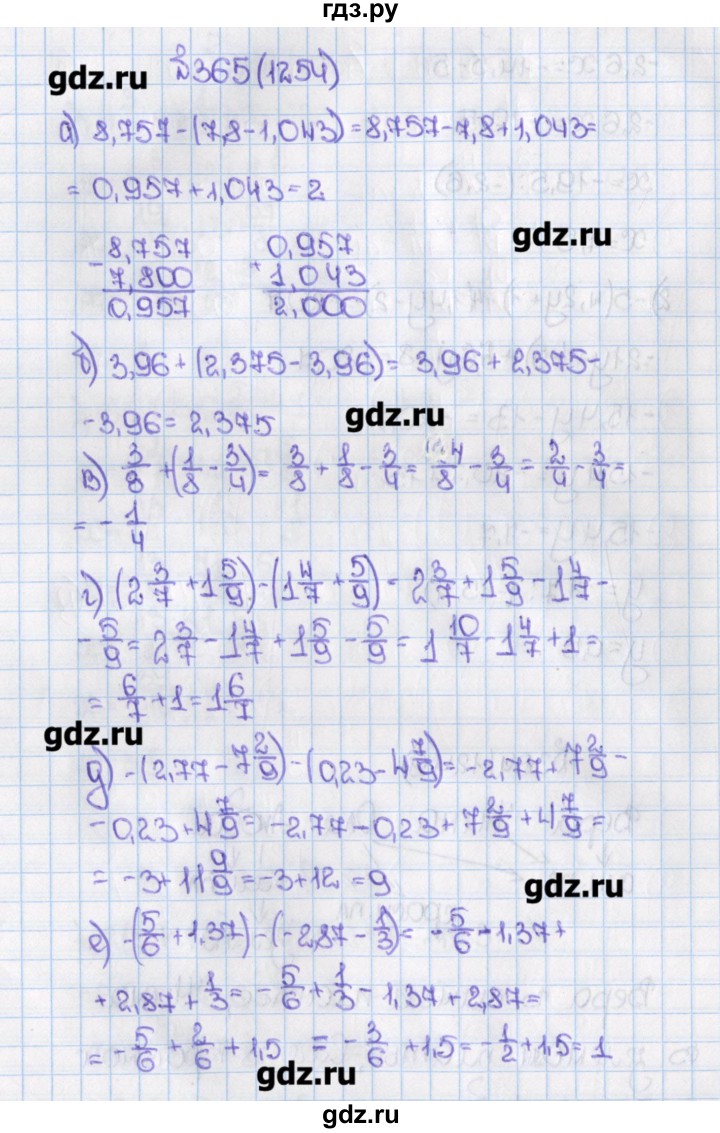 гдз.ру
gdz.ru
№365(1254)
а) 8,757-(7,8-1,043)=8,757-7,8+1,043=
= 0,957+1,043=2
gdz.ru
- 8,757
7,800
0,957
+ 0,957
1,043
2,000
б) 3,96+(2,375-3,96)= 3,96+2,375-
-3,96= 2,375
gdz.ru
в) 3/8 +(1/8 - 3/4)= 3/8 + 1/8 - 3/4 = 4/8 - 3/4 = 2/4 - 3/4 =
= - 1/4
г) (2 3/7 +1 5/9)-(1 4/7 + 5/9)= 2 3/7 +1 5/9 -1 4/7 -
- 5/9 = 2 3/7 -1 4/7 +1 5/9 - 5/9 = 1 10/7 -1 4/7 +1=
= 6/7 +1=1 6/7
gdz.ru
д) -(2,77-7 2/9)-(0,23-4 7/9)= -2,77+7 2/9 -
-0,23+4 7/9 = -2,77-0,23+7 2/9 +4 7/9 =
= -3+11 9/9 = -3+12 = 9
gdz.ru
е) -(5/6 +1,37)-(-2,87- 1/3)= - 5/6 -1,37+
+2,87+ 1/3 = - 5/6 + 1/3 -1,37+2,87=
= - 5/6 + 2/6 +1,5 = - 3/6 +1,5= - 1/2 +1,5= 1
gdz.ru
gdz.ru